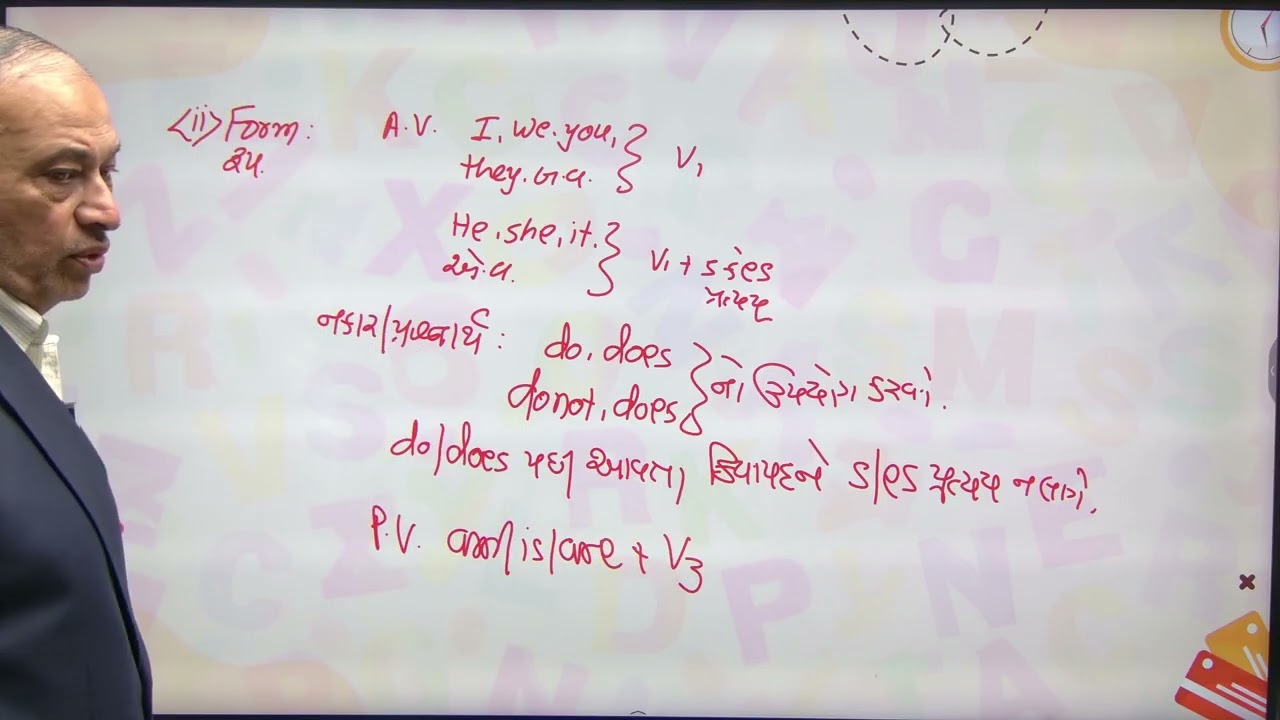 <ii> Form: A.V. I, we. you, } V1
રૂપ. they. બ.વ.
He, she, it. } V1 + s કે es
એ.વ. પ્રત્યય
નકાર/પ્રશ્નાર્થ : do, does
do not, does } નો ઉપયોગ કરવો.
do/does પછી આવતા ક્રિયાપદને s/es પ્રત્યય ન લાગે.
P.V. am/is/are + V3